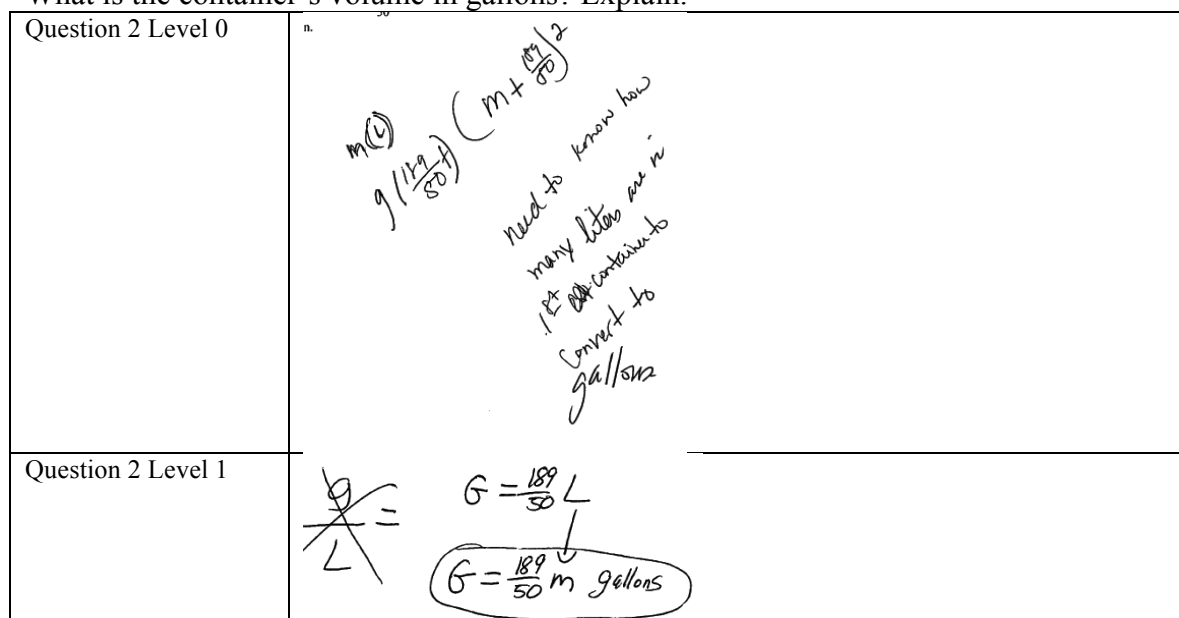 What is the container's volume in gallons? Explain.
Question 2 Level 0
n.
50
m(L)
g(189/50 +) (m + 189/50)2
need to know how
many liters are in
1st container to
convert to
gallons
Question 2 Level 1
g/L =
G = 189/50 L
G = 189/50 m gallons